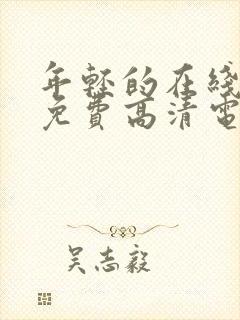 年轻的在綫
免費高清電
吴志毅